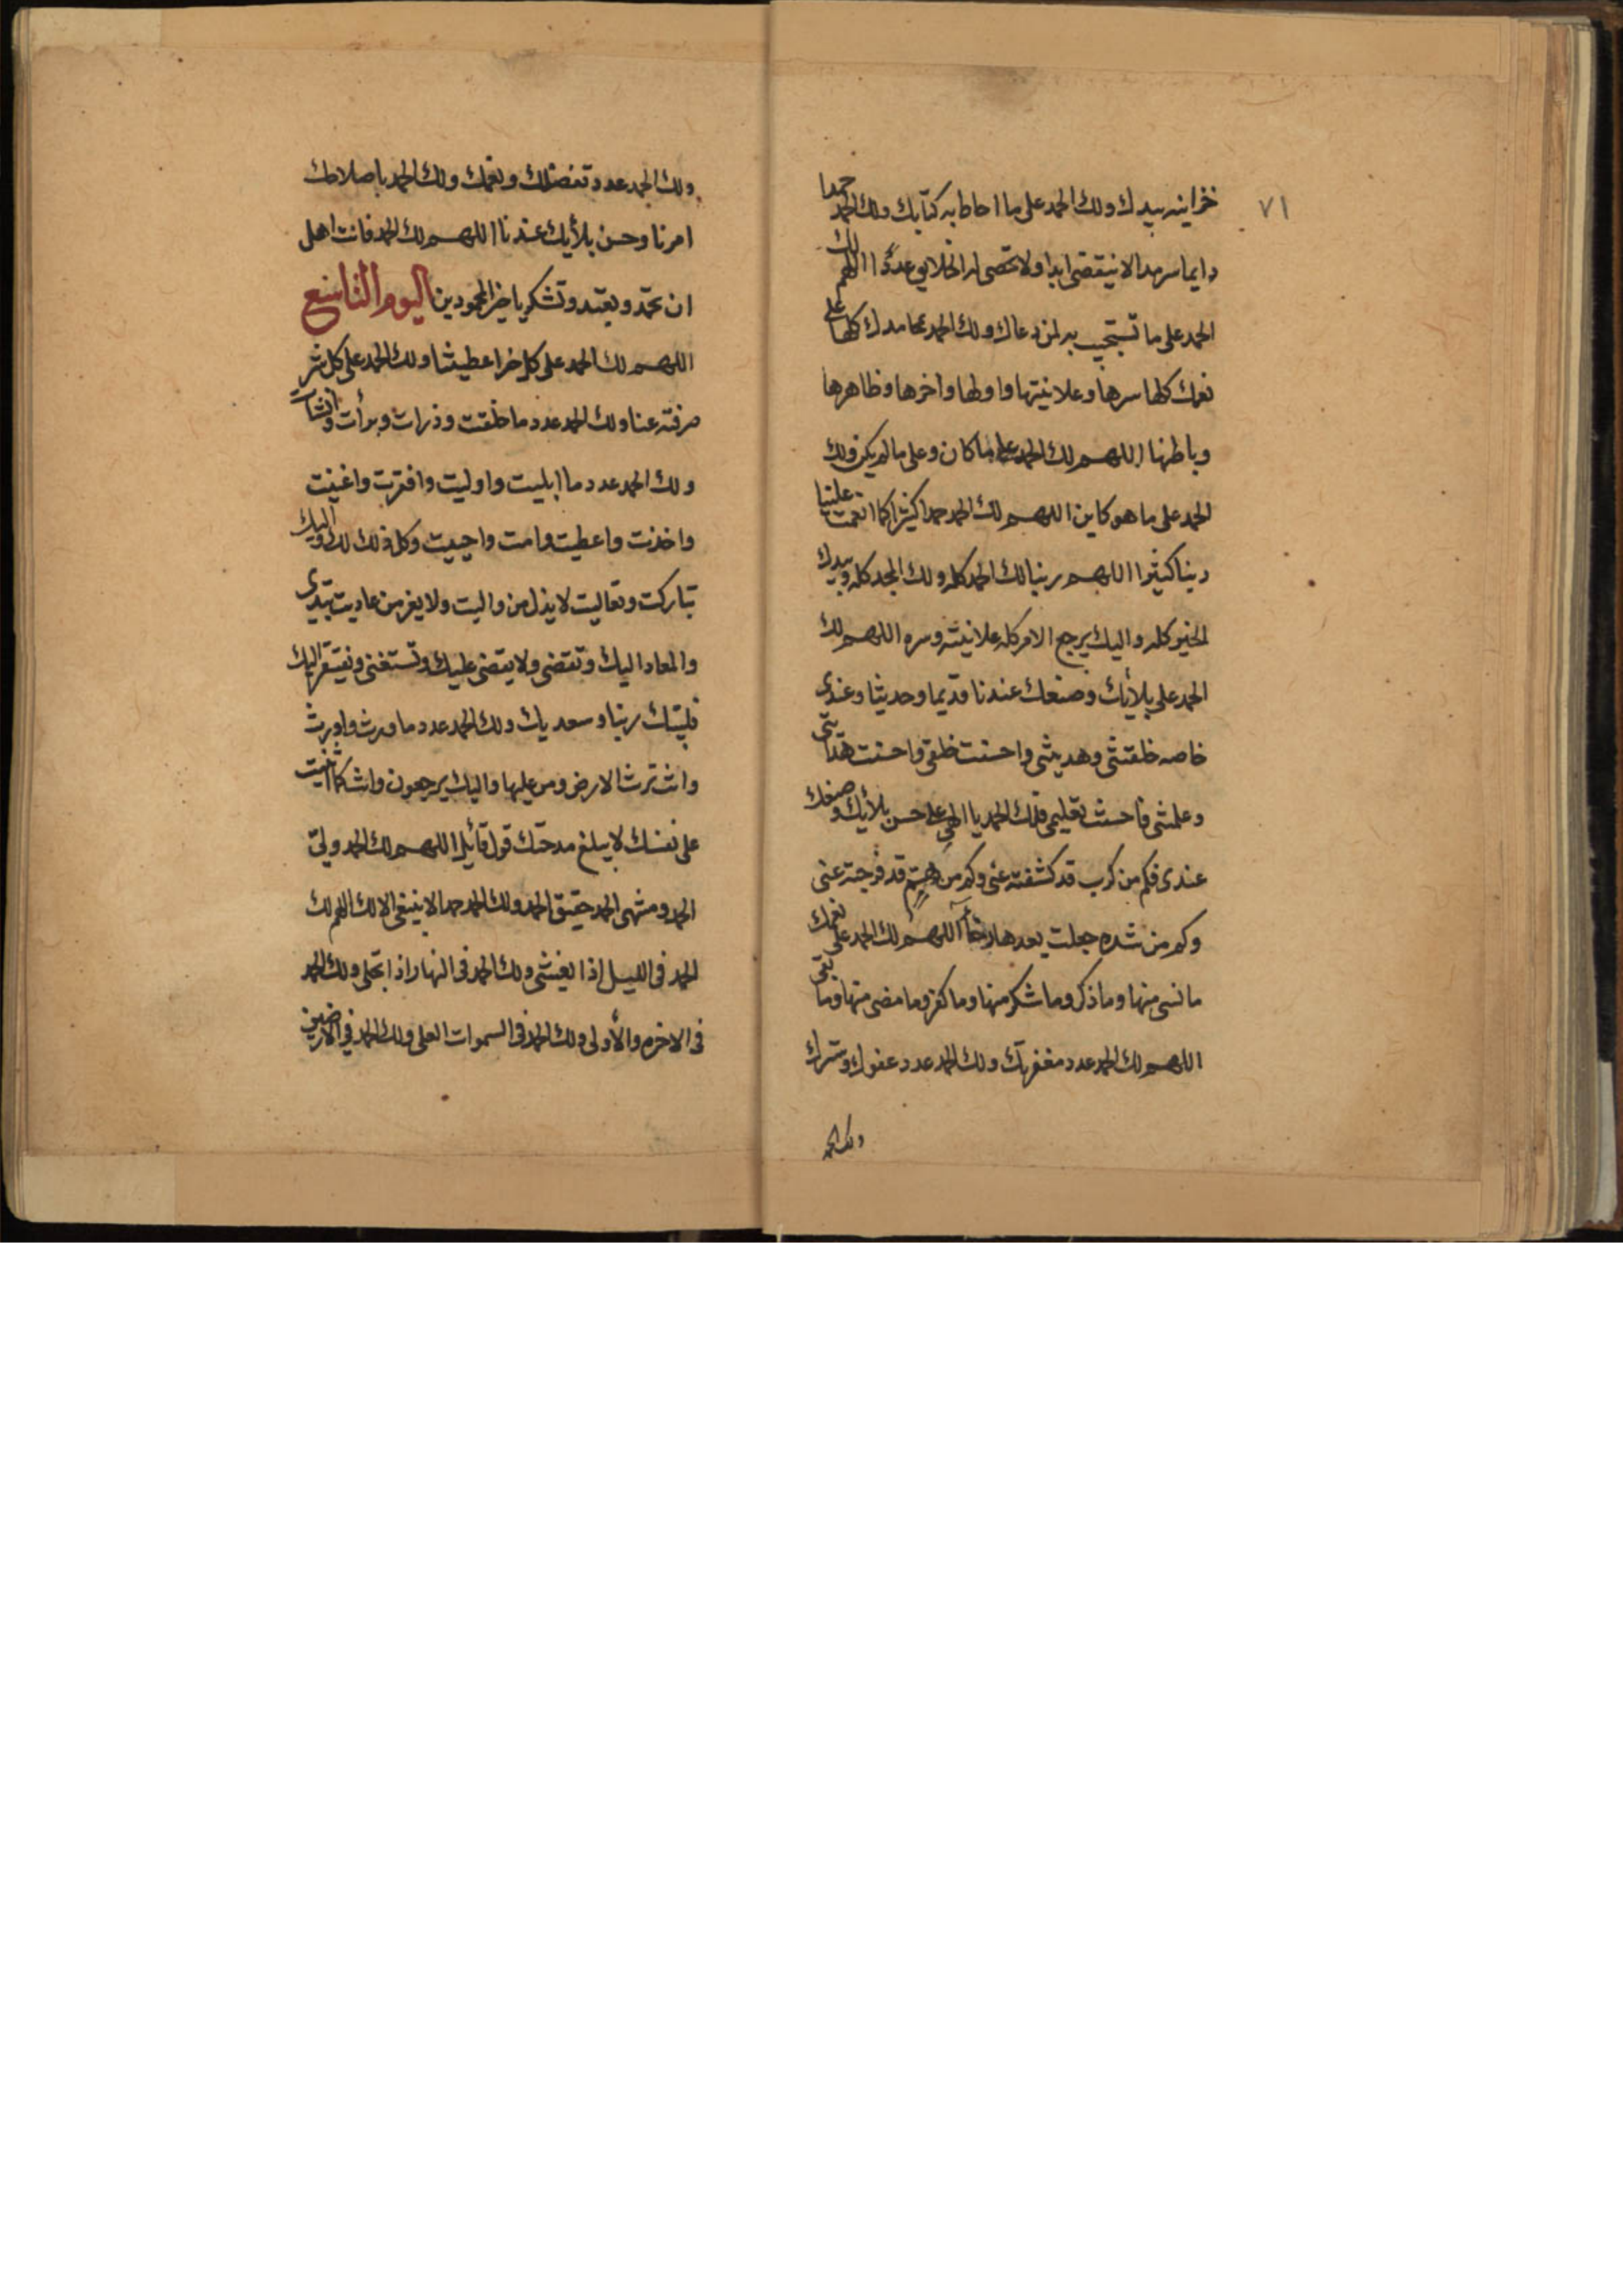 ٧١
خزاينه بيدك ولك الحمد على ما احاط به كتابك ولك الحمد حمدا
دايما سرمدا لا ينقضى ابدا ولا تحصى له الخلايق عددا اللهم لك
الحمد على ما تستجيب به لمن دعاك ولك الحمد بمحامدك كلها على
نعمك كلها سرها وعلانيتها واولها واخرها وظاهرها
وباطنها اللهم لك الحمد على ما كان وعلى ما لم يكن ولك
الحمد على ما هو كاين اللهم لك الحمد حمدا كثيرا كما انعمت علينا
ربنا كثيرا اللهم ربنا لك الحمد كله ولك المجد كله وبيدك
الخير كله واليك يرجع الامر كله علانيته وسره اللهم لك
الحمد على بلأيك وصنعك عندنا قديما وحديثا وعندى
خاصه خلقتنى وهديتنى واحسنت خلقى واحسنت هدايتى
وعلمتنى فاحسنت تعليمى فلك الحمد يا الهى على حسن بلأيك وصنعك
عندى فكم من كرب قد كشفته عنى وكم من هم قد فرجته عنى
وكم من شده جعلت بعدها رخأ اللهم لك الحمد على نعمك
ما نسى منها وما ذكر وما شكر منها وما كفر وما مضى منها وما بقى
اللهم لك الحمد عدد مغفرتك ولك الحمد عدد عفوك وسترك
ولك الحمد
ولك الحمد عدد تفضلك ونعمك ولك الحمد باصلاحك
امرنا وحسن بلأيك عندنا اللهم لك الحمد فانت اهل
ان تحمد وتعبد وتشكر يا خير المحمودين اليوم التاسع
اللهم لك الحمد على كل خير اعطيتنا ولك الحمد على كل شر
صرفته عنا ولك الحمد عدد ما خلقت وذرات وبرأت وانشات
ولك الحمد عدد ما ابليت واوليت وافقرت واغنيت
واخذت واعطيت وامت واحييت وكل ذلك لك واليك
تباركت وتعاليت لا يذل من واليت ولا يعز من عاديت تبدى
والمعاد اليك وتقضى ولا يقضى عليك وتستغنى ونفتقر اليك
فلبيك ربنا وسعديك ولك الحمد عدد ما ورث واورث
وانت ترث الارض ومن عليها واليك يرجعون وانت كما اثنيت
على نفسك لا يبلغ مدحتك قول قائل اللهم لك الحمد ولى
الحمد ومنتهى الحمد حقيق الحمد ولك الحمد حمدا لا ينبغى الا لك اللهم لك
الحمد فى الليل اذا يغشى ولك الحمد فى النهار اذا تجلى ولك الحمد
فى الاخره والأولى ولك الحمد فى السموات العلى ولك الحمد في الارضين